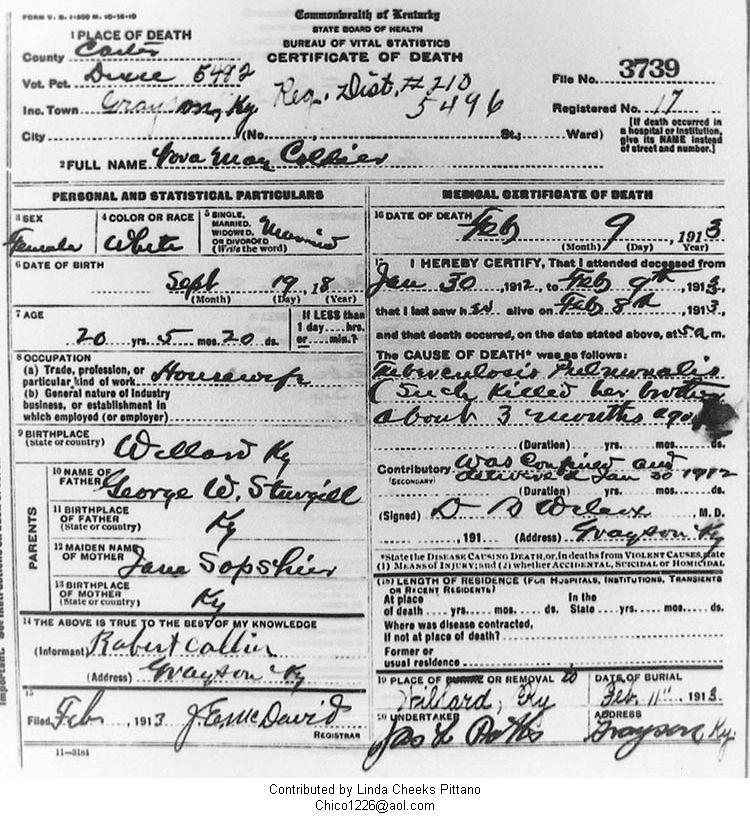 FORM V. S. 1-300 M. 10-16-10
Commonwealth of Kentucky
STATE BOARD OF HEALTH
BUREAU OF VITAL STATISTICS
CERTIFICATE OF DEATH
1 PLACE OF DEATH
County Carter
Vot. Pct. 5492
Inc. Town Grayson, Ky
Reg. Dist. # 210
5496
File No. 3739
Registered No. 17
City (No. , St.; Ward)
[If death occurred in a hospital or institution, give its NAME instead of street and number.]
2 FULL NAME May Collier
PERSONAL AND STATISTICAL PARTICULARS
3 SEX Female
4 COLOR OR RACE White
5 SINGLE, MARRIED, WIDOWED, OR DIVORCED (Write the word) Married
6 DATE OF BIRTH
Sept 19, 18
(Month) (Day) (Year)
7 AGE
20 yrs. 5 mos. 20 ds.
If LESS than 1 day....hrs. or....min.?
8 OCCUPATION
(a) Trade, profession, or particular kind of work Housewife
(b) General nature of industry business, or establishment in which employed (or employer)
9 BIRTHPLACE
(State or country) Willard Ky
PARENTS
10 NAME OF FATHER George W. Sturgill
11 BIRTHPLACE OF FATHER (State or country) Ky
12 MAIDEN NAME OF MOTHER Jane
13 BIRTHPLACE OF MOTHER (State or country) Ky
14 THE ABOVE IS TRUE TO THE BEST OF MY KNOWLEDGE
(Informant) Robert Collier
(Address) Grayson Ky
15
Filed Feb , 1913 J.E. McDavid
REGISTRAR
11-3184
MEDICAL CERTIFICATE OF DEATH
16 DATE OF DEATH Feb 9, 1913
(Month) (Day) (Year)
17 I HEREBY CERTIFY, That I attended deceased from
Jan 30, 1912, to Feb 9th, 1913,
that I last saw alive on Feb 8th, 1913,
and that death occured, on the date stated above, at 5 a m.
The CAUSE OF DEATH* was as follows:
Tuberculosis Pulmonalis
(Such killed her brother
about 3 months ago
(Duration) yrs. mos. ds.
Contributory Was Confined and
(SECONDARY) delivered Jan 30 1912
(Duration) yrs. mos. ds.
(Signed) M. D.
, 191 (Address) Grayson Ky
*State the DISEASE CAUSING DEATH, or, in deaths from VIOLENT CAUSES, state
(1) MEANS OF INJURY; and (2) whether ACCIDENTAL, SUICIDAL OR HOMICIDAL
(18) LENGTH OF RESIDENCE (FOR HOSPITALS, INSTITUTIONS, TRANSIENTS OR RECENT RESIDENTS)
At place of death yrs. mos. ds. In the State yrs. mos. ds.
Where was disease contracted, If not at place of death?
Former or usual residence
19 PLACE OF BURIAL OR REMOVAL
Willard, Ky
DATE OF BURIAL
Feb. 11", 1913
20 UNDERTAKER
ADDRESS
Grayson, Ky.
Contributed by Linda Cheeks Pittano
Chico1226@aol.com